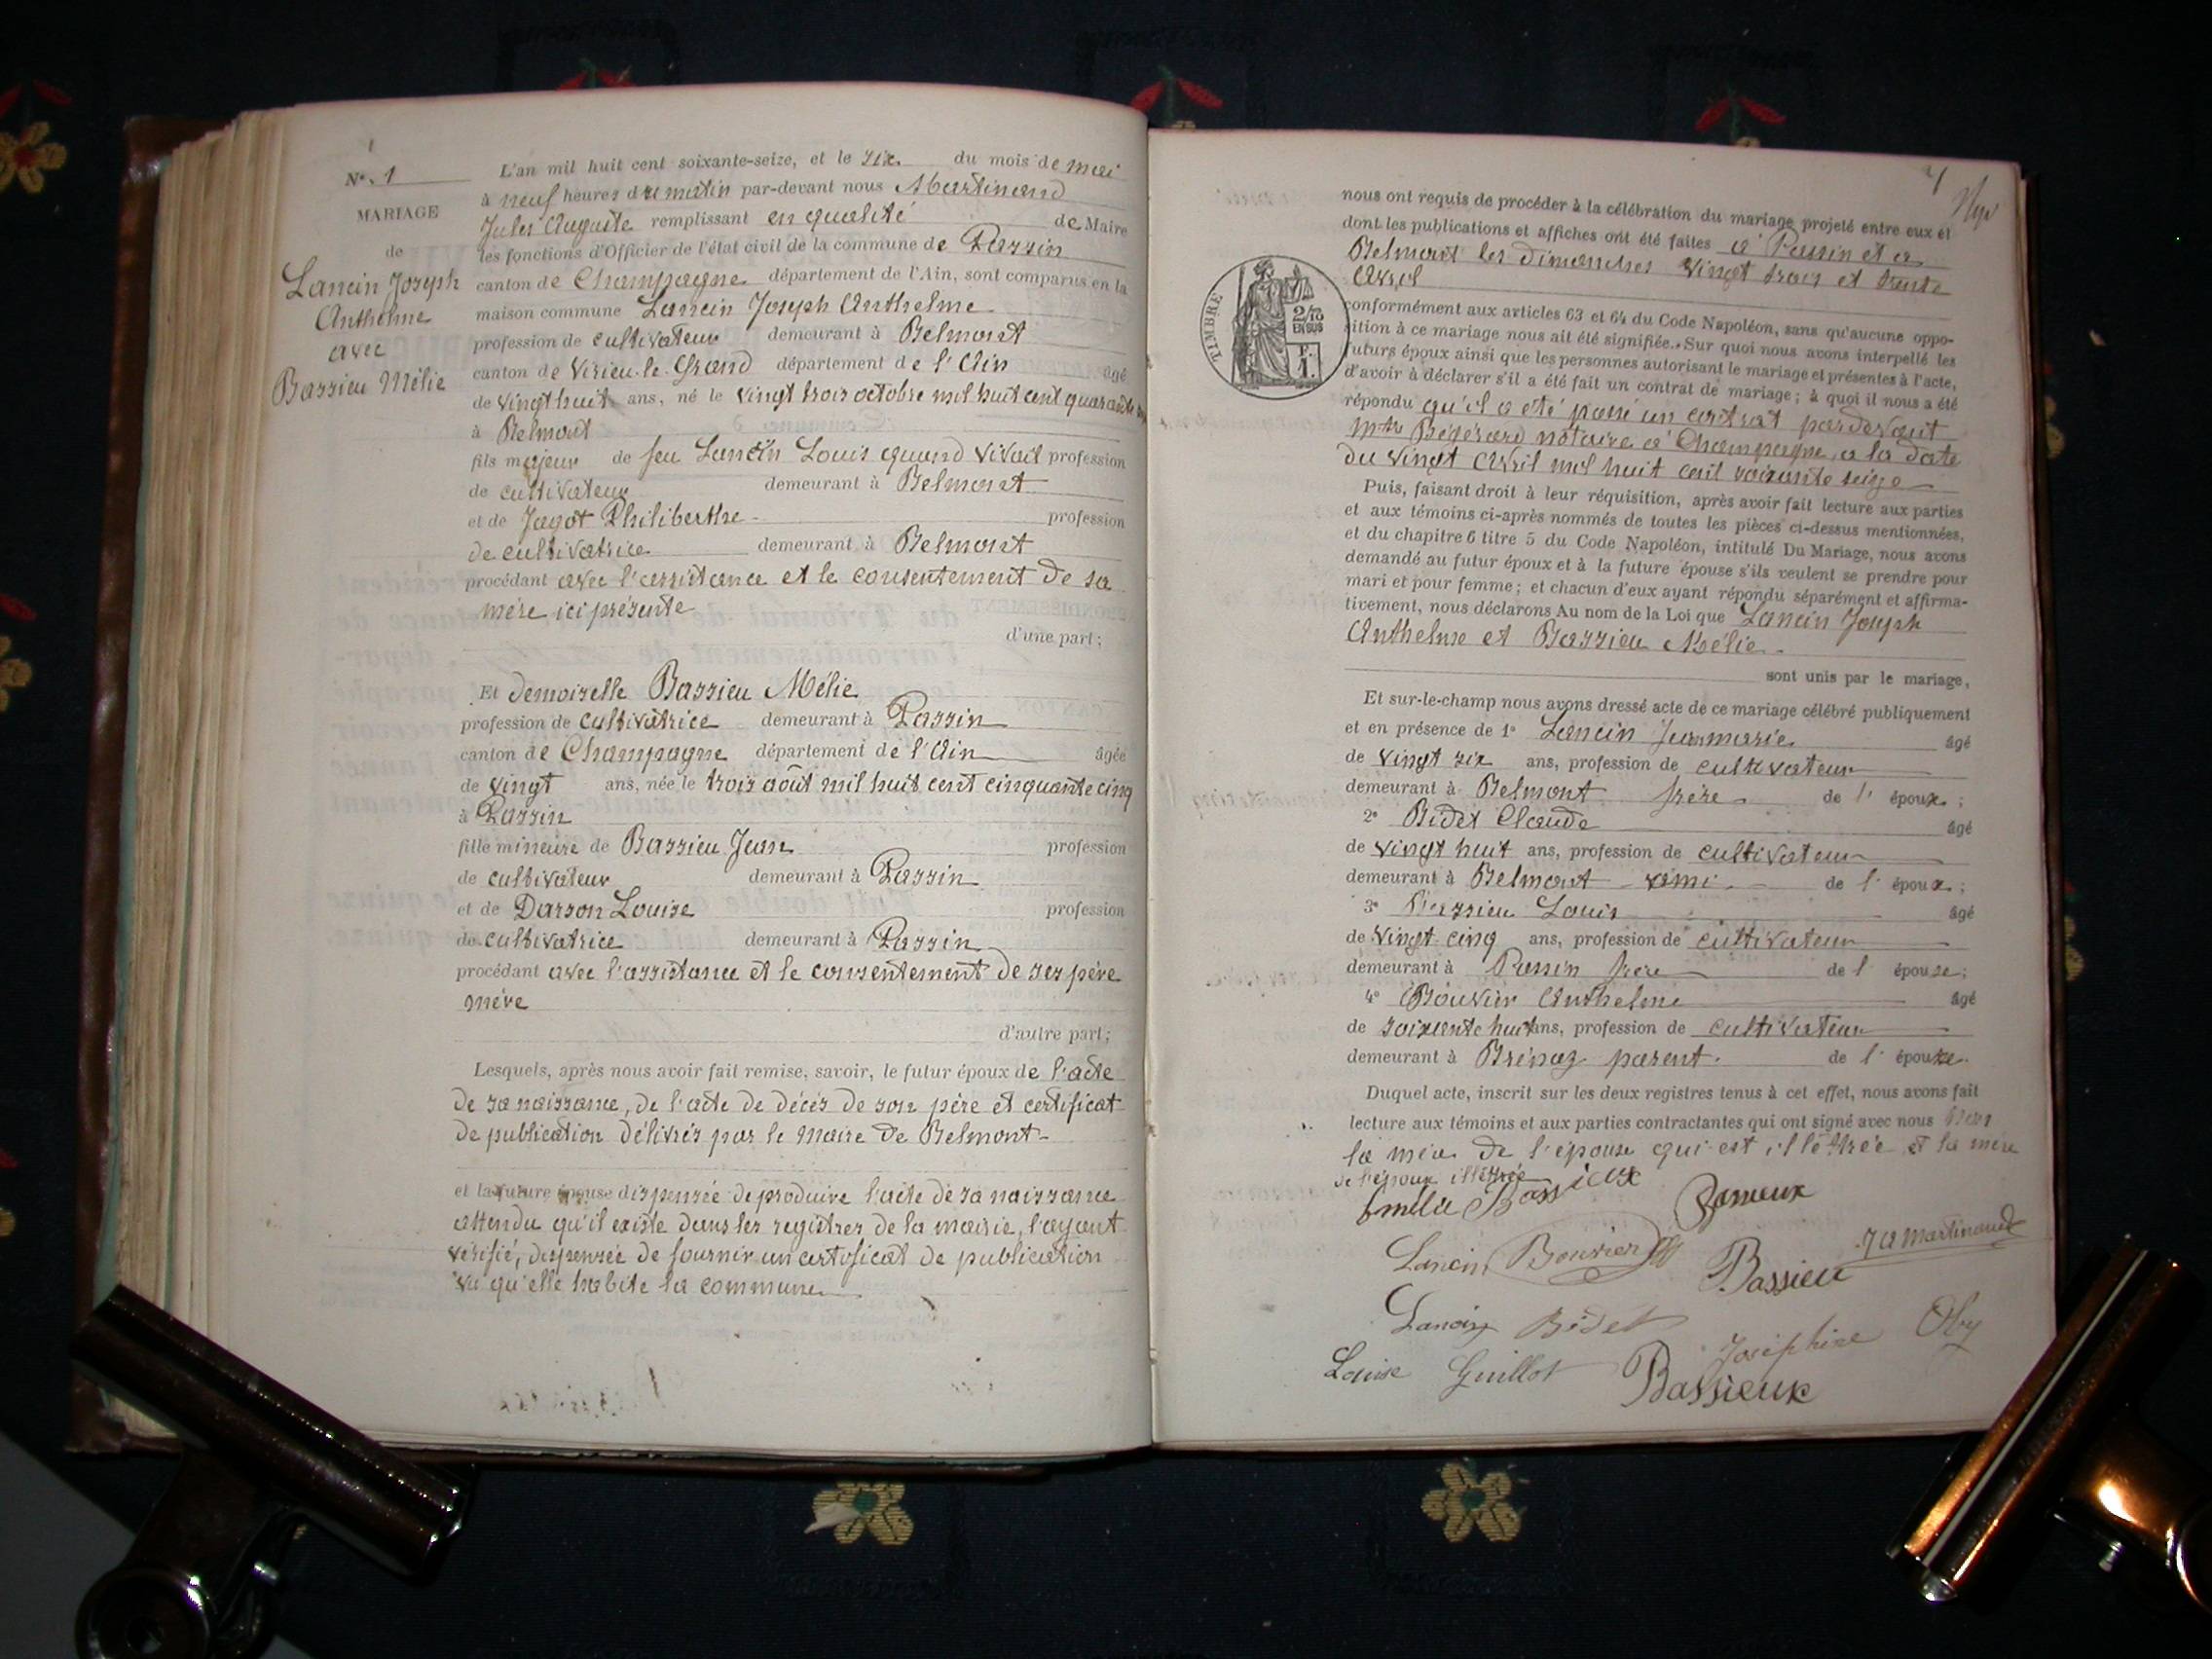 N° 1
MARIAGE
de
Lancin Joseph
Anthelme
avec
Bassieu Mélie
L'an mil huit cent soixante-seize, et le six du mois de mai
à neuf heures du matin par-devant nous Martinand
Jules Auguste remplissant en qualité de Maire
les fonctions d'Officier de l'état civil de la commune de Passin
canton de Champagne département de l'Ain, sont comparus en la
maison commune Lancin Joseph Anthelme
profession de cultivateur demeurant à Belmont
canton de Virieu-le-Grand département de l'Ain âgé
de vingt huit ans, né le vingt trois octobre mil huit cent quarante
à Belmont
fils majeur de feu Lancin Louis quand vivait profession
de cultivateur demeurant à Belmont
et de Jagot Philiberthe profession
de cultivatrice demeurant à Belmont
procédant avec l'assistance et le consentement de sa
mère ici présente
d'une part;
Et demoiselle Bassieu Mélie
profession de cultivatrice demeurant à Passin
canton de Champagne département de l'Ain âgée
de vingt ans, née le trois août mil huit cent cinquante cinq
à Passin
fille mineure de Bassieu Jean profession
de cultivateur demeurant à Passin
et de Darson Louise profession
de cultivatrice demeurant à Passin
procédant avec l'assistance et le consentement de ses père
mère
d'autre part;
Lesquels, après nous avoir fait remise, savoir, le futur époux de l'acte
de sa naissance, de l'acte de décès de son père et certificat
de publication délivrés par le Maire de Belmont
et la future épouse dispensée de produire l'acte de sa naissance
attendu qu'il existe dans les registres de la mairie, l'ayant
vérifié, dispensée de fournir un certificat de publication
vu qu'elle habite la commune
nous ont requis de procéder à la célébration du mariage projeté entre eux et
dont les publications et affiches ont été faites à Passin et à
Belmont les dimanches vingt trois et trente
Avril
TIMBRE
2/10
EN SUS
F.
1.
conformément aux articles 63 et 64 du Code Napoléon, sans qu'aucune oppo-
sition à ce mariage nous ait été signifiée. Sur quoi nous avons interpellé les
futurs époux ainsi que les personnes autorisant le mariage et présentes à l'acte,
d'avoir à déclarer s'il a été fait un contrat de mariage; à quoi il nous a été
répondu qu'il a été passé un contrat pardevant
notaire à Champagne, a la date
du vingt Avril mil huit cent soixante seize
Puis, faisant droit à leur réquisition, après avoir fait lecture aux parties
et aux témoins ci-après nommés de toutes les pièces ci-dessus mentionnées,
et du chapitre 6 titre 5 du Code Napoléon, intitulé Du Mariage, nous avons
demandé au futur époux et à la future épouse s'ils veulent se prendre pour
mari et pour femme; et chacun d'eux ayant répondu séparément et affirma-
tivement, nous déclarons Au nom de la Loi que Lancin Joseph
Anthelme et Bassieu Mélie
sont unis par le mariage,
Et sur-le-champ nous avons dressé acte de ce mariage célébré publiquement
et en présence de 1° Lancin Jeanmarie âgé
de vingt six ans, profession de cultivateur
demeurant à Belmont frère de l' époux;
2° Bidet Claude âgé
de vingt huit ans, profession de cultivateur
demeurant à Belmont ami de l' époux;
3° Bassieu Louis âgé
de vingt cinq ans, profession de cultivateur
demeurant à Passin frère de l' épouse;
4° Bouvier Anthelme âgé
de soixante huit ans, profession de cultivateur
demeurant à Brénaz parent de l' épouse.
Duquel acte, inscrit sur les deux registres tenus à cet effet, nous avons fait
lecture aux témoins et aux parties contractantes qui ont signé avec nous
la mère de l'épouse qui est illétrée et la mère
de l'époux illétrée
Emélie Bassieux
Lancin Bouvier Bassieu J A Martinand
Lancin Bidet Joséphine
Louise Guillot Bassieux